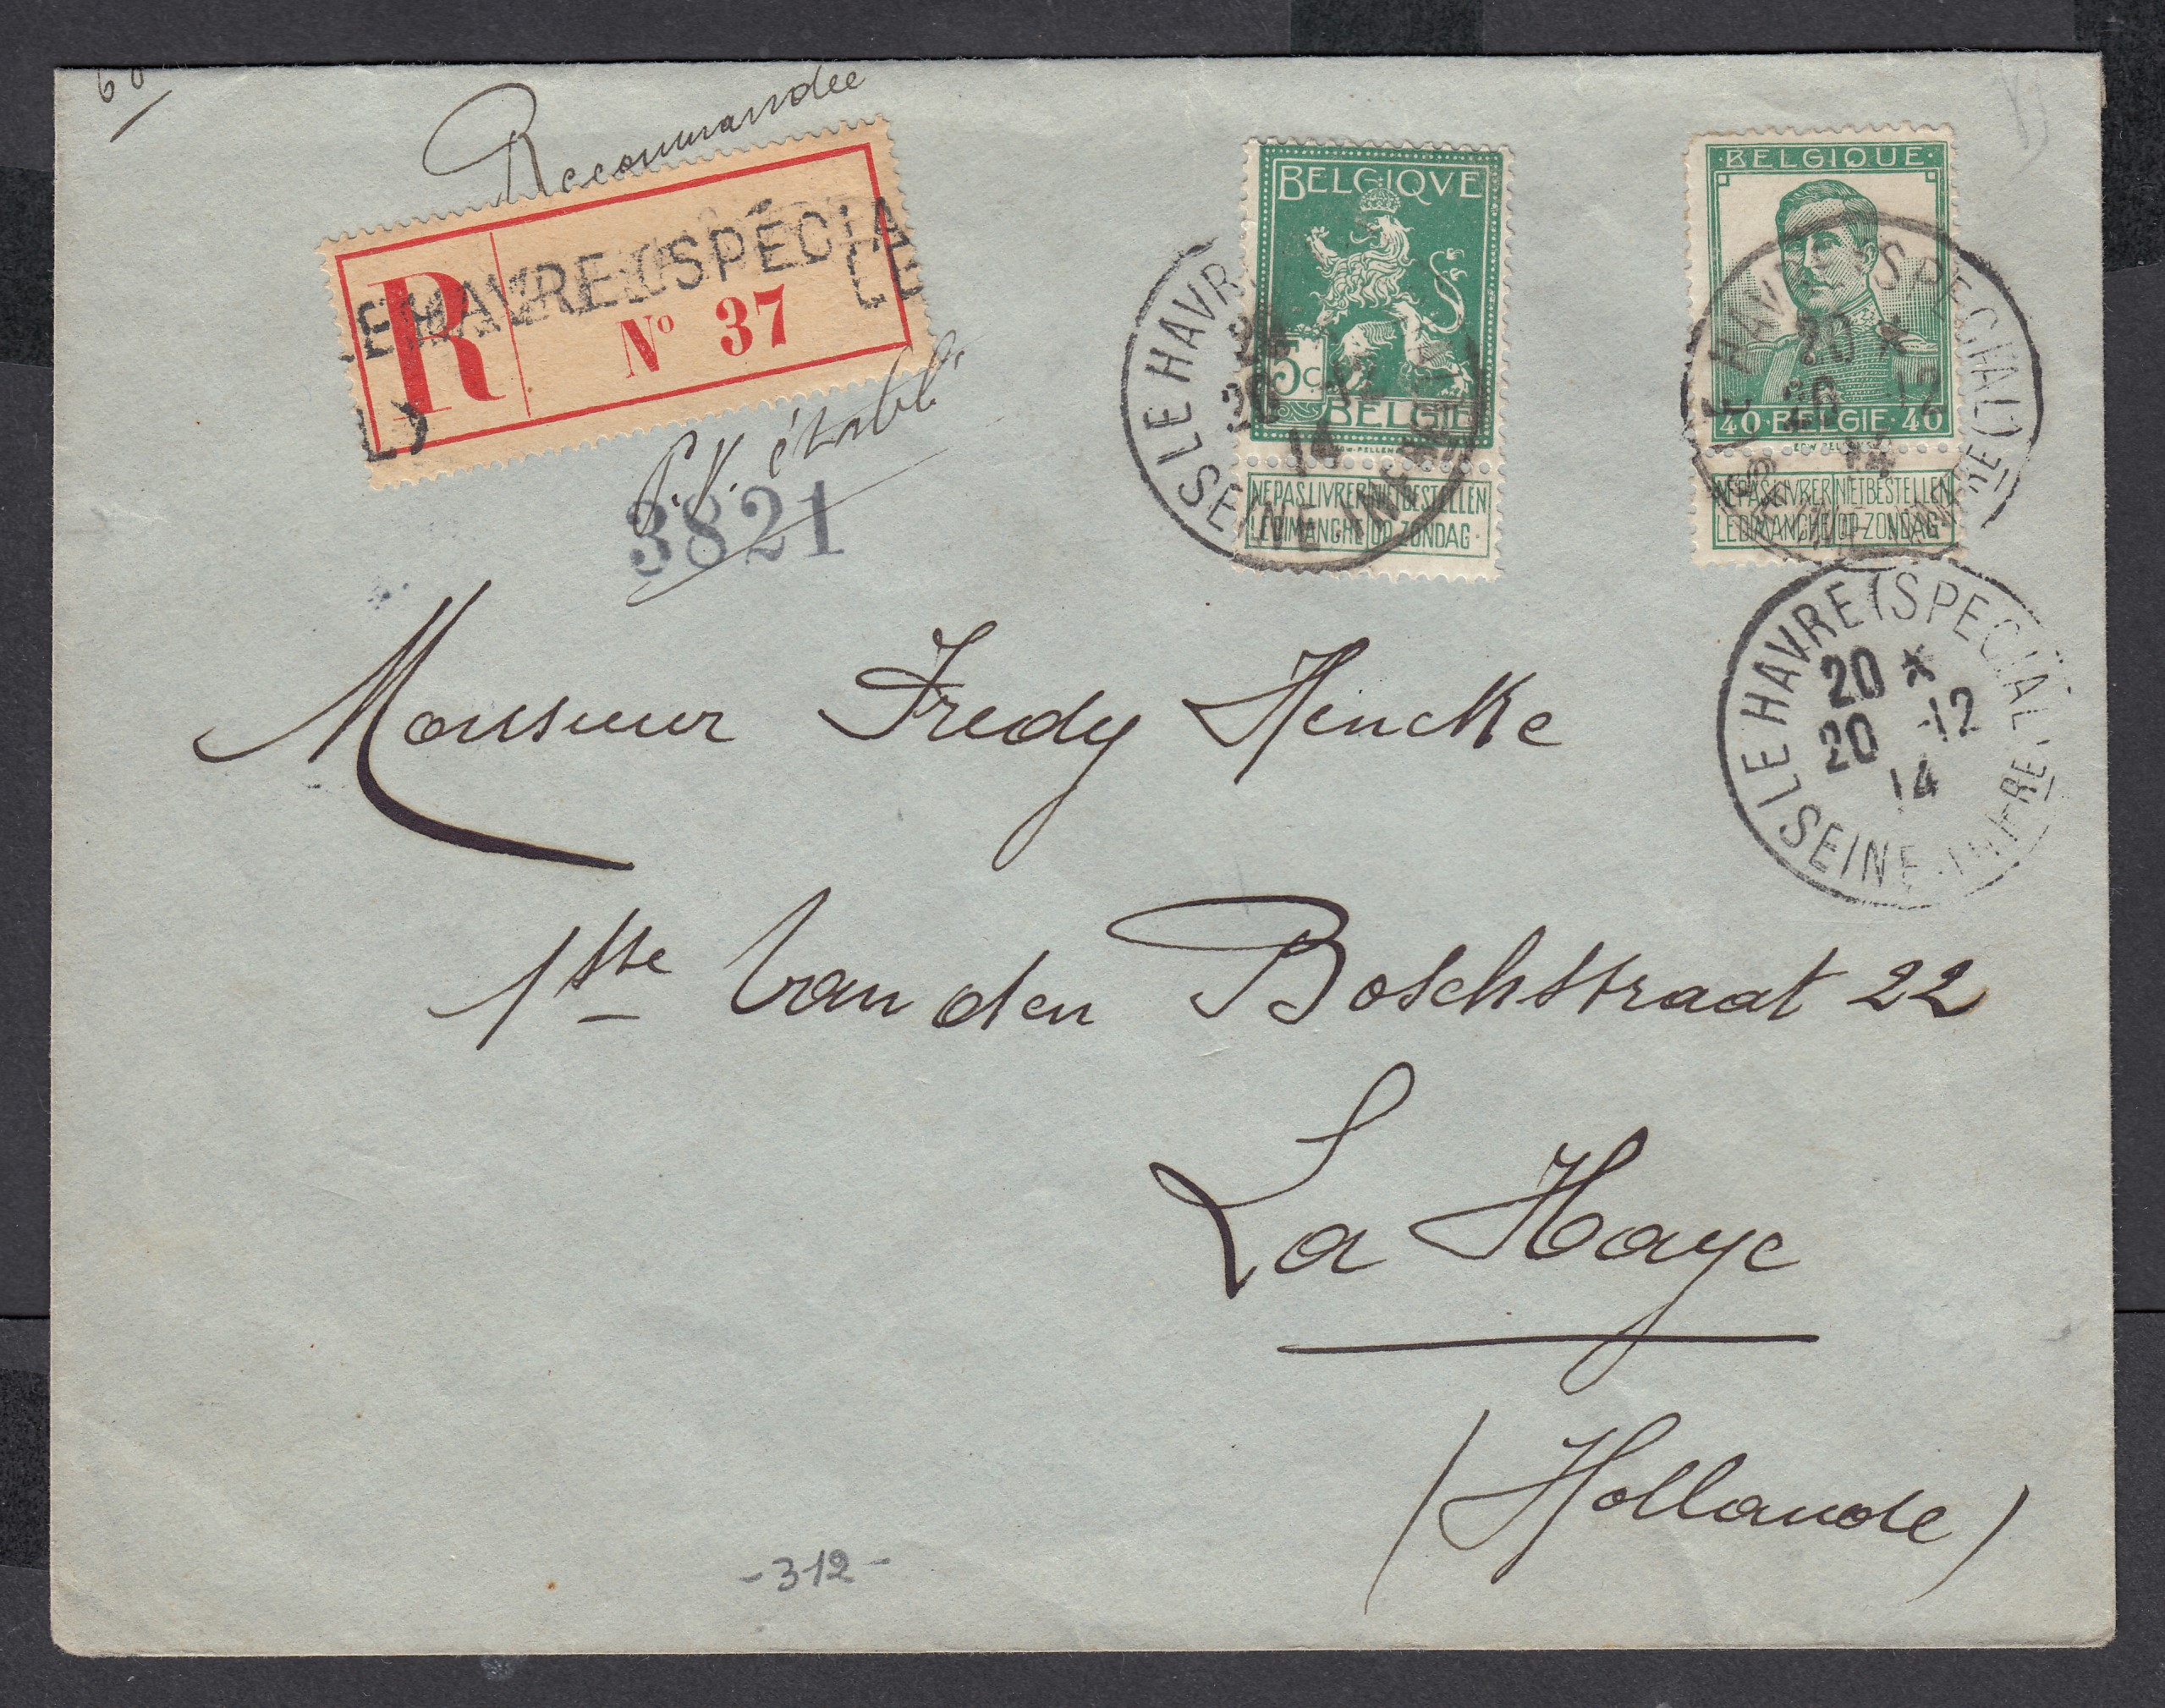 60
Recommandée
LE HAVRE (SPÉCIAL)
R
Nº 37
P.V. établi
3821
BELGIQVE
5c
BELGIE
NE PAS LIVRER LE DIMANCHE
NIET BESTELLEN OP ZONDAG
·BELGIQUE·
40·BELGIE·40
NE PAS LIVRER LE DIMANCHE
NIET BESTELLEN OP ZONDAG
LE HAVRE (SPECIAL)
20 *
20 -12
14
SEINE INFRE
LE HAVRE (SPECIAL)
20 *
20 -12
14
SEINE INFRE
LE HAVRE (SPECIAL)
20 *
20 -12
14
SEINE INFRE
Monsieur Fredy Hincke
1ste Van den Boschstraat 22
La Haye
(Hollande)
-312-